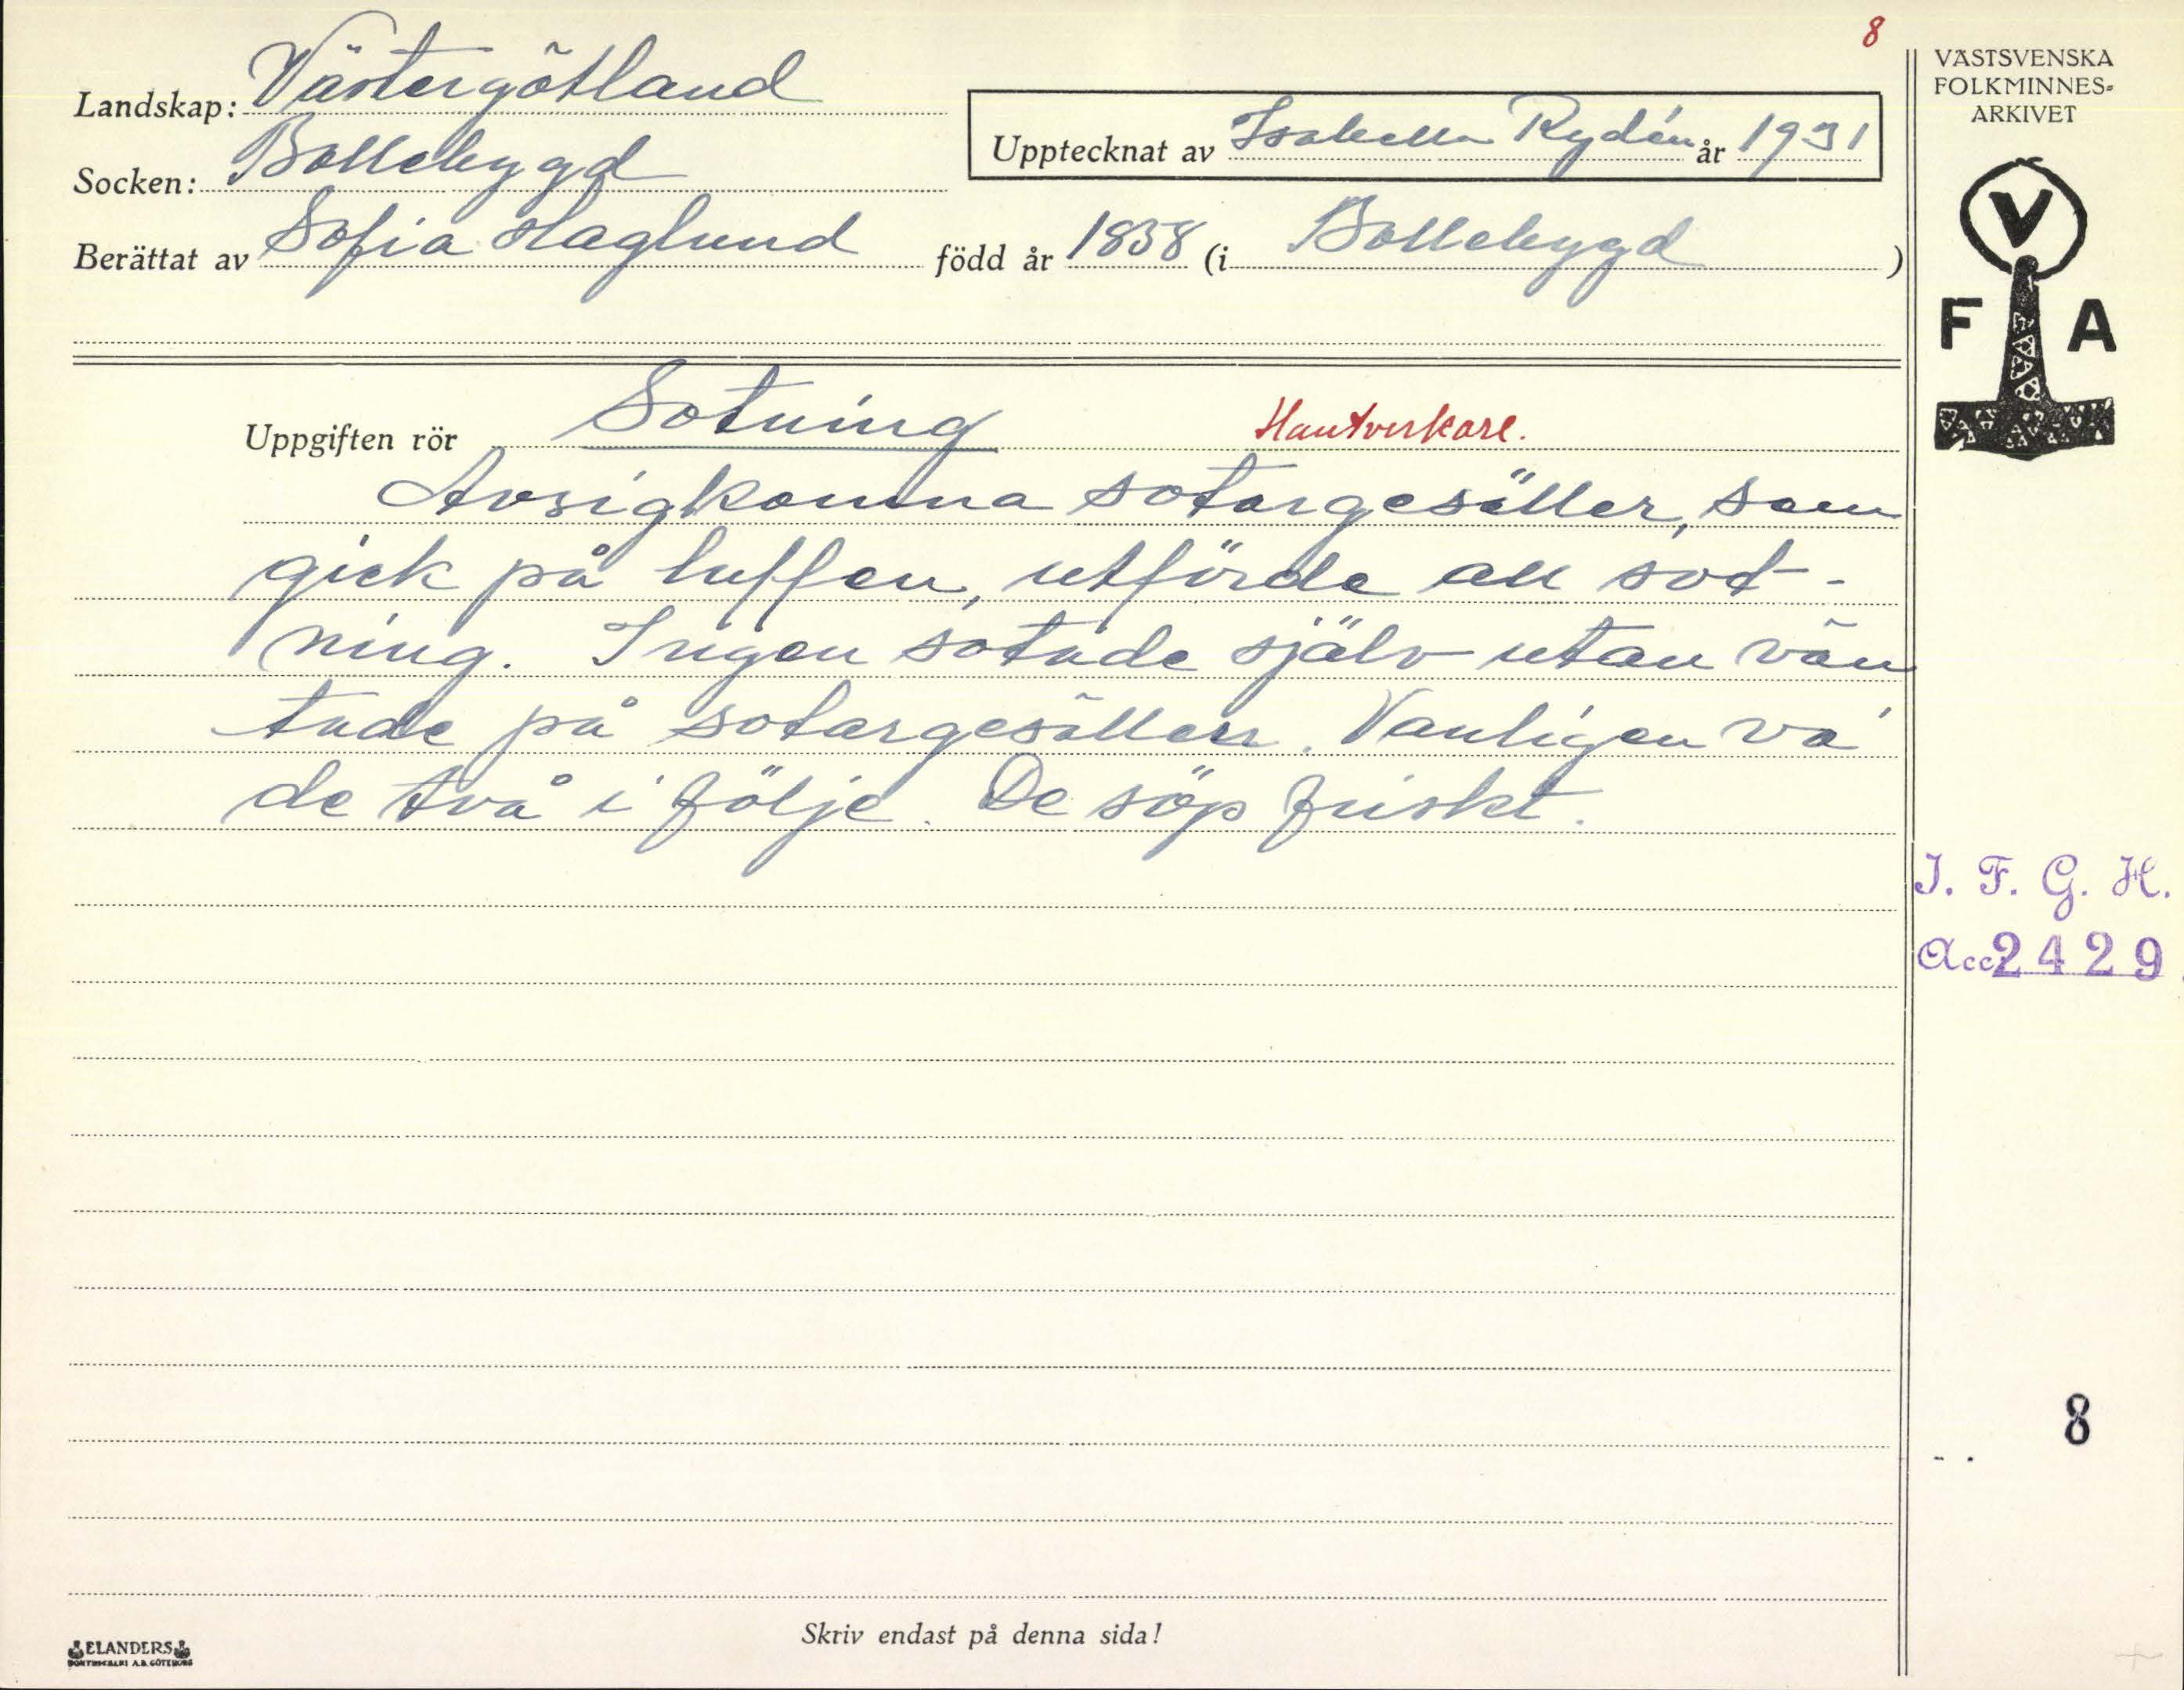 8
VÄSTSVENSKA
FOLKMINNES-
ARKIVET
Landskap: Västergötland
Upptecknat av Isabella Rydén år 1931
Socken: Bollebygd
Berättat av Sofia Haglund född år 1838 (i Bollebygd )
V
F A
Uppgiften rör Sotning Hantverkare.
Avsigkomna sotargesäller, som
gick på luffen, utförde all sot-
ning. Ingen sotade själv utan vän
tade på sotargesällen. Vanligen va'
de två i följe. De söp friskt.
I. F. G. H.
Acc. 2429
8
Skriv endast på denna sida!
ELANDERS
BOKTRYCKERI A.B. GÖTEBORG